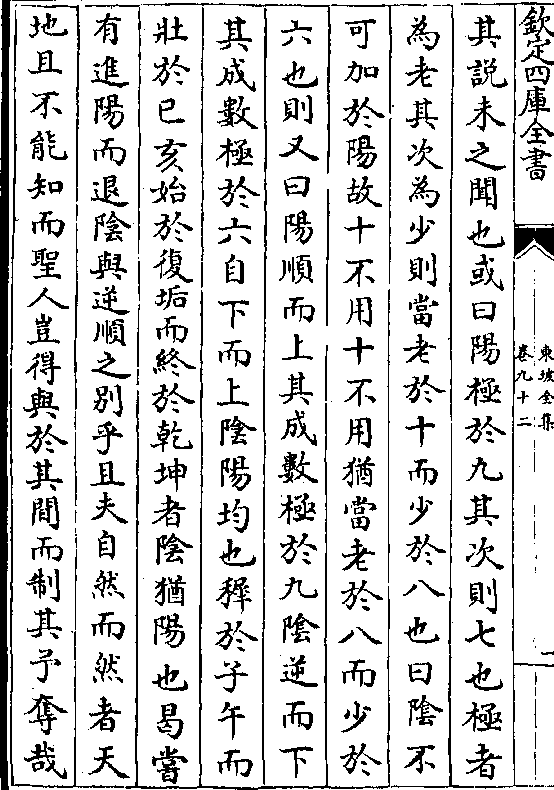 欽定四庫全書
東坡全集
卷九十二
一
其説未之聞也或曰陽極於九其次則七也極者
為老其次為少則當老於十而少於八也曰陰不
可加於陽故十不用十不用猶當老於八而少於
六也則又曰陽順而上其成數極於九陰逆而下
其成數極於六自下而上陰陽均也穉於子午而
壯於巳亥始於復垢而終於乾坤者陰猶陽也曷嘗
有進陽而退陰與逆順之别乎且夫自然而然者天
地且不能知而聖人豈得與於其間而制其予奪哉